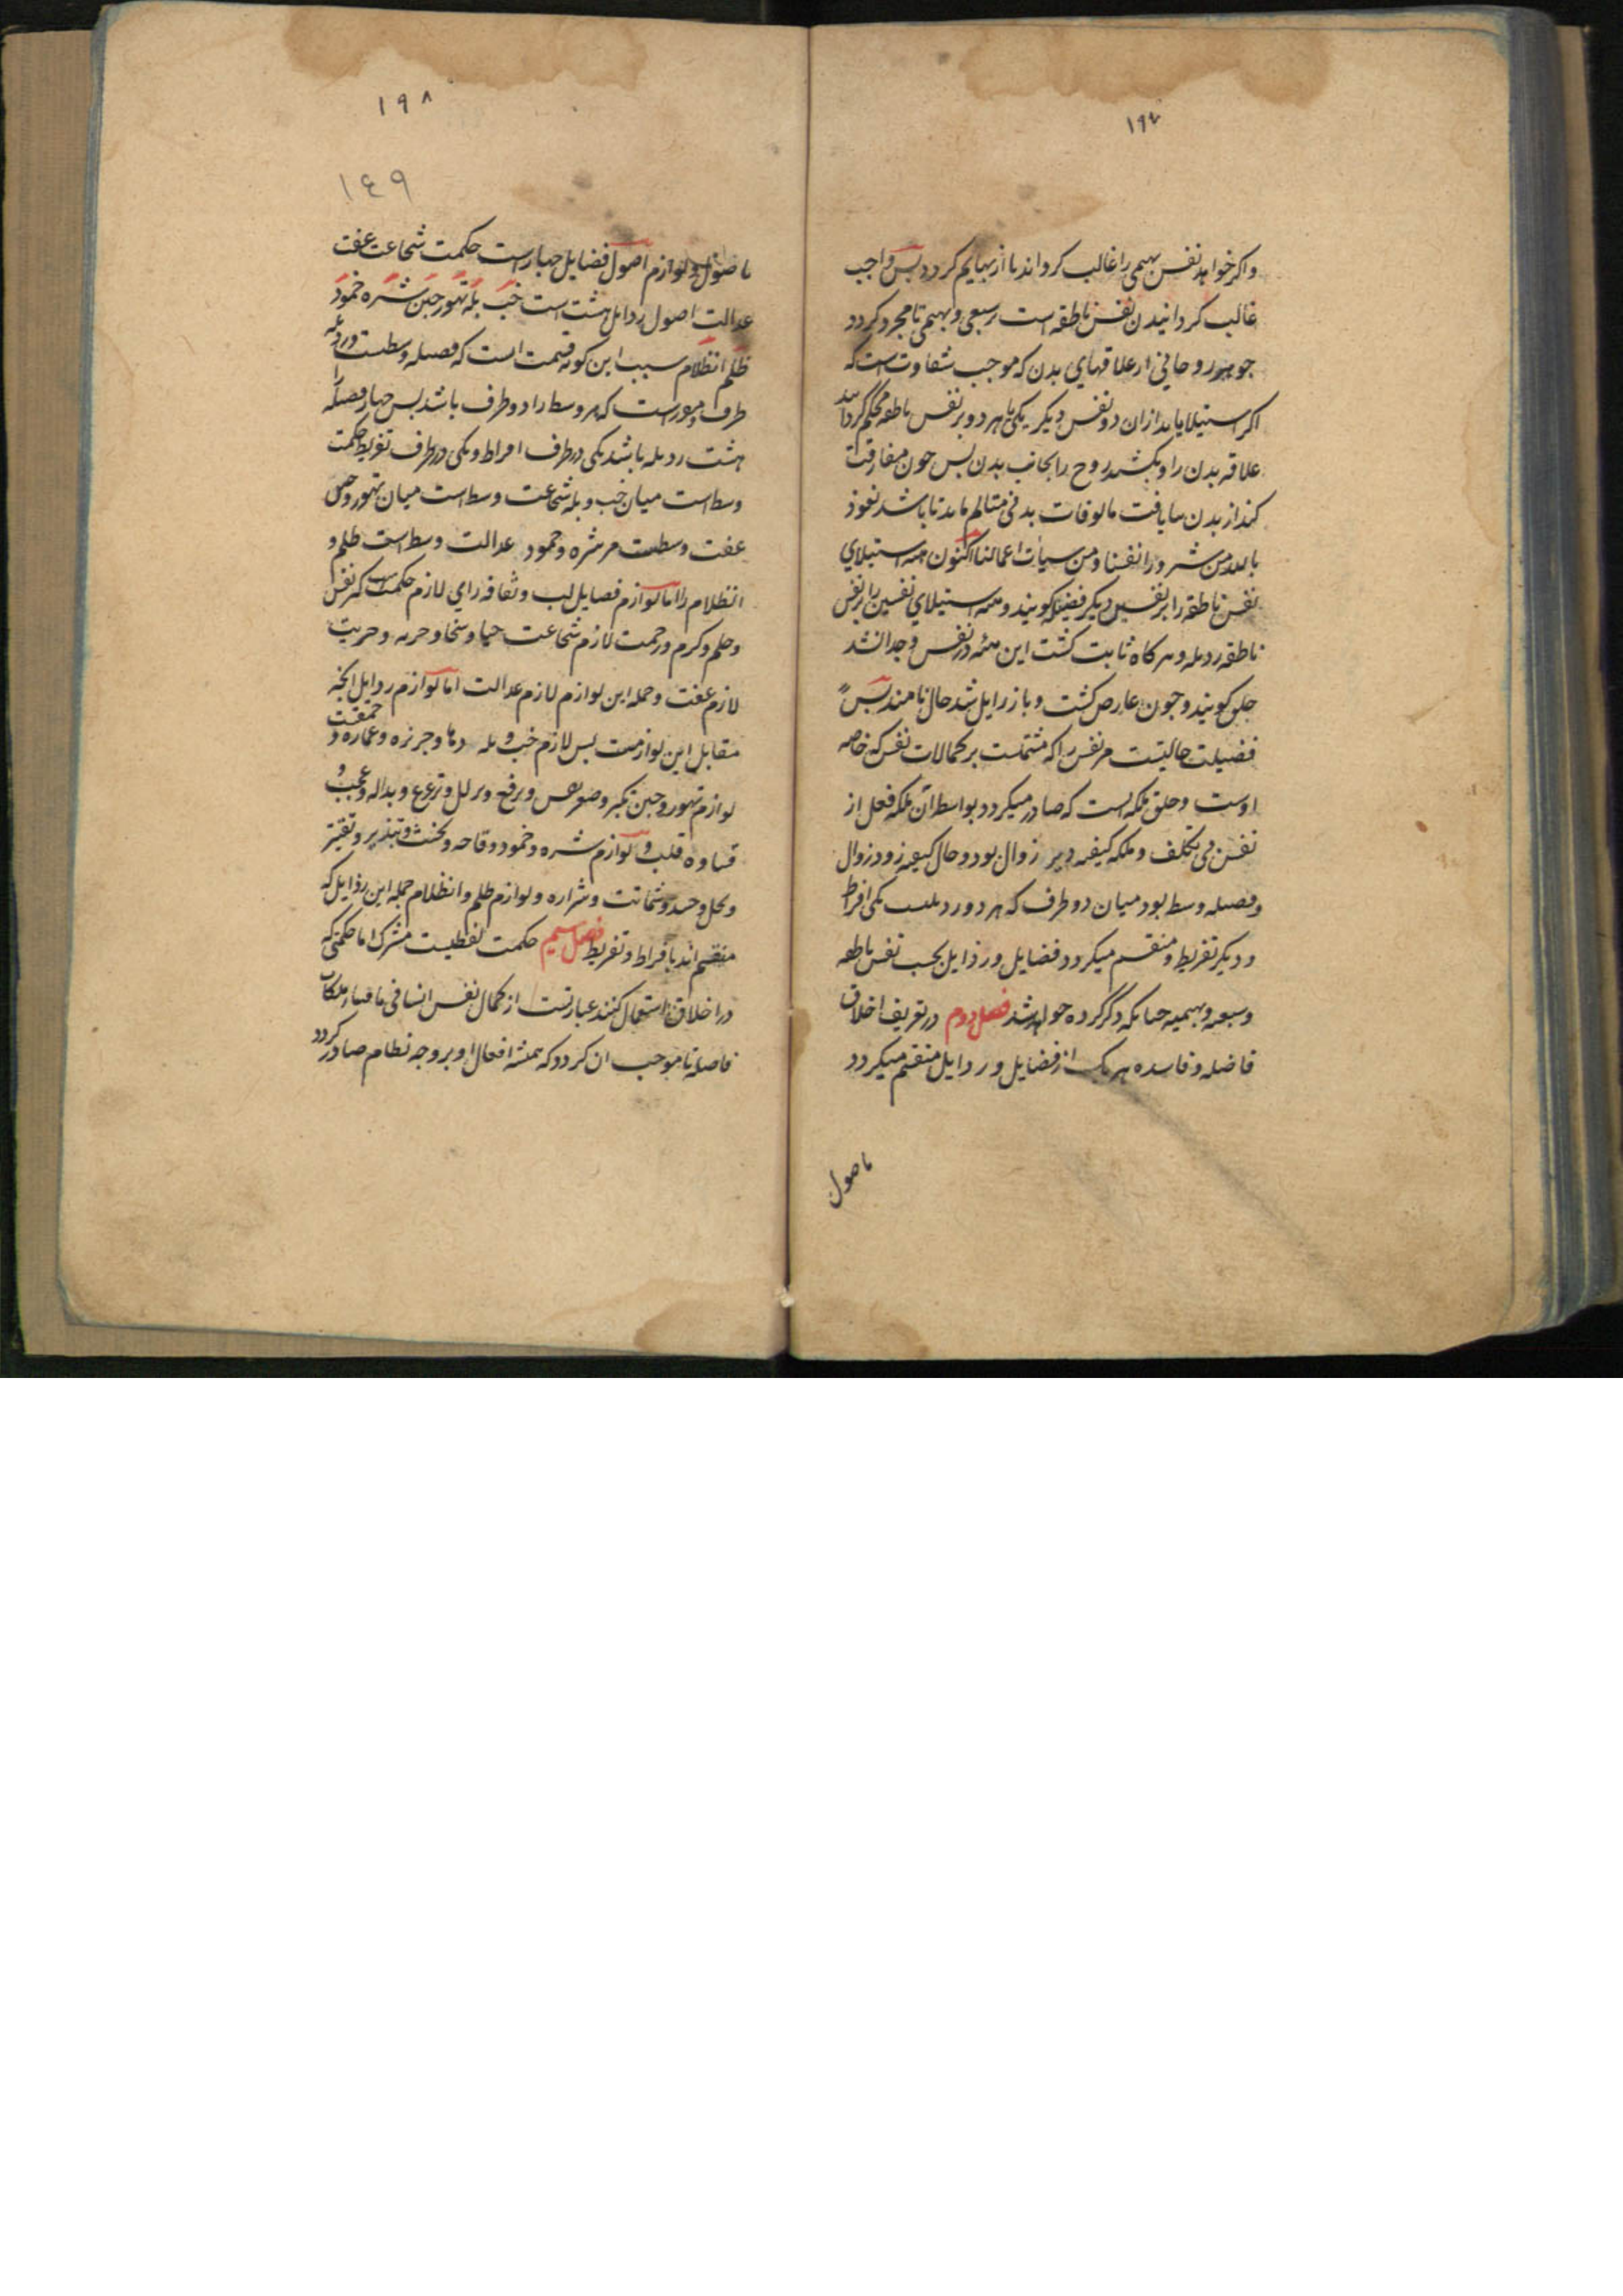 ۱۹۷
واکر خواهد نفس بهیمی را غالب کرداند تا از بهایم کردد بس واجب
غالب کردانیدن نفس ناطقه است بر سبعی و بهیمی تا مجرد کردد
جوهر روحانی از علاقهای بدن که موجب شقاوت است که
اکر استیلا یابد ازان دو نفس دیکر یکی یا هر دو بر نفس ناطقه محکم کرداند
علاقه بدن را و بکشد روح را بجانب بدن بس جون مفارقت
کند از بدن نیافت مالوفات بدنی متالم ماند تا باشد نعوذ
بالله من شرور انفسنا و من سیات اعمالنا اکنون هیه استیلای
نفس ناطقه را بر نفسین دیکر فضیله کویند و هیه استیلای نفسین را بر نفس
ناطقه رذیله و هر کاه ثابت کشت این هیه در نفس و جدا نشد
خلق کویند و جون عارض کشت و باز زایل شد حال نامند بس
فضیلت حالیست مر نفس را که مشتملست بر کمالات نفس که خاصه
اوست و خلق ملکه ایست که صادر میکردد بواسطه آن ملکه فعل از
نفس بی تکلف و ملکه کیفیه دیر زوال بود و حال کیفیه زود زوال
و فضیله وسط بود میان دو طرف که هر دو رذیلست یکی افراط
و دیکر تفریط و منقسم میکردد فضایل و رذایل بحسب نفس ناطقه
و سبعیه و بهیمیه جنانکه ذکر کرده خواهد شد فصل دوم در تعریف اخلاق
فاضله و فاسده هر یک از فضایل و رذایل منقسم میکردد
باصول
۱۹۸
۱٤۹
باصول و لوازم اصول فضایل جهارست حکمت شجاعت عفت
عدالت اصول رذایل هشت است خب بله تهور جبن شره خمود
ظلم انظلام سبب این کونه قسمت انست که فضیله وسطست و رذیله
طرف و مقررست که هر وسط را دو طرف باشد بس جهار فضیله را
هشت رذیله باشد یکی در طرف افراط و یکی در طرف تفریط حکمت
وسط است میان خب و بله شجاعت وسط است میان تهور و جبن
عفت وسطست مر شره و خمود عدالت وسط است ظلم و
انظلام را اما لوازم فضایل لب و ثقافه رای لازم حکمت است کبر نفس
و حلم و کرم و رحمت لازم شجاعت حیا و سخا و حریه و حریت
لازم عفت و جمله این لوازم لازم عدالت اما لوازم رذایل انجه
مقابل این لوازمست بس لازم خب و بله دها و جربزه و غماره و حمقت
لوازم تهور و جبن تکبر و و و و بذاله و عجب و
قساوه قلب و لوازم شره و خمود وقاحه و تخنث و تبذیر و تقتیر
و بخل و حسد و شماتت و شراره و لوازم ظلم و انظلام جمله این رذایل که
منقسم اند بافراط و تفریط فصل سیم حکمت لفظیست مشترک اما حکمتی که
در اخلاق استعمال کنند عبارتست از کمال نفس انسانی باقتناء ملکات
فاضله تا موجب ان کردد که همیشه افعال او بر وجه نظام صادر کردد